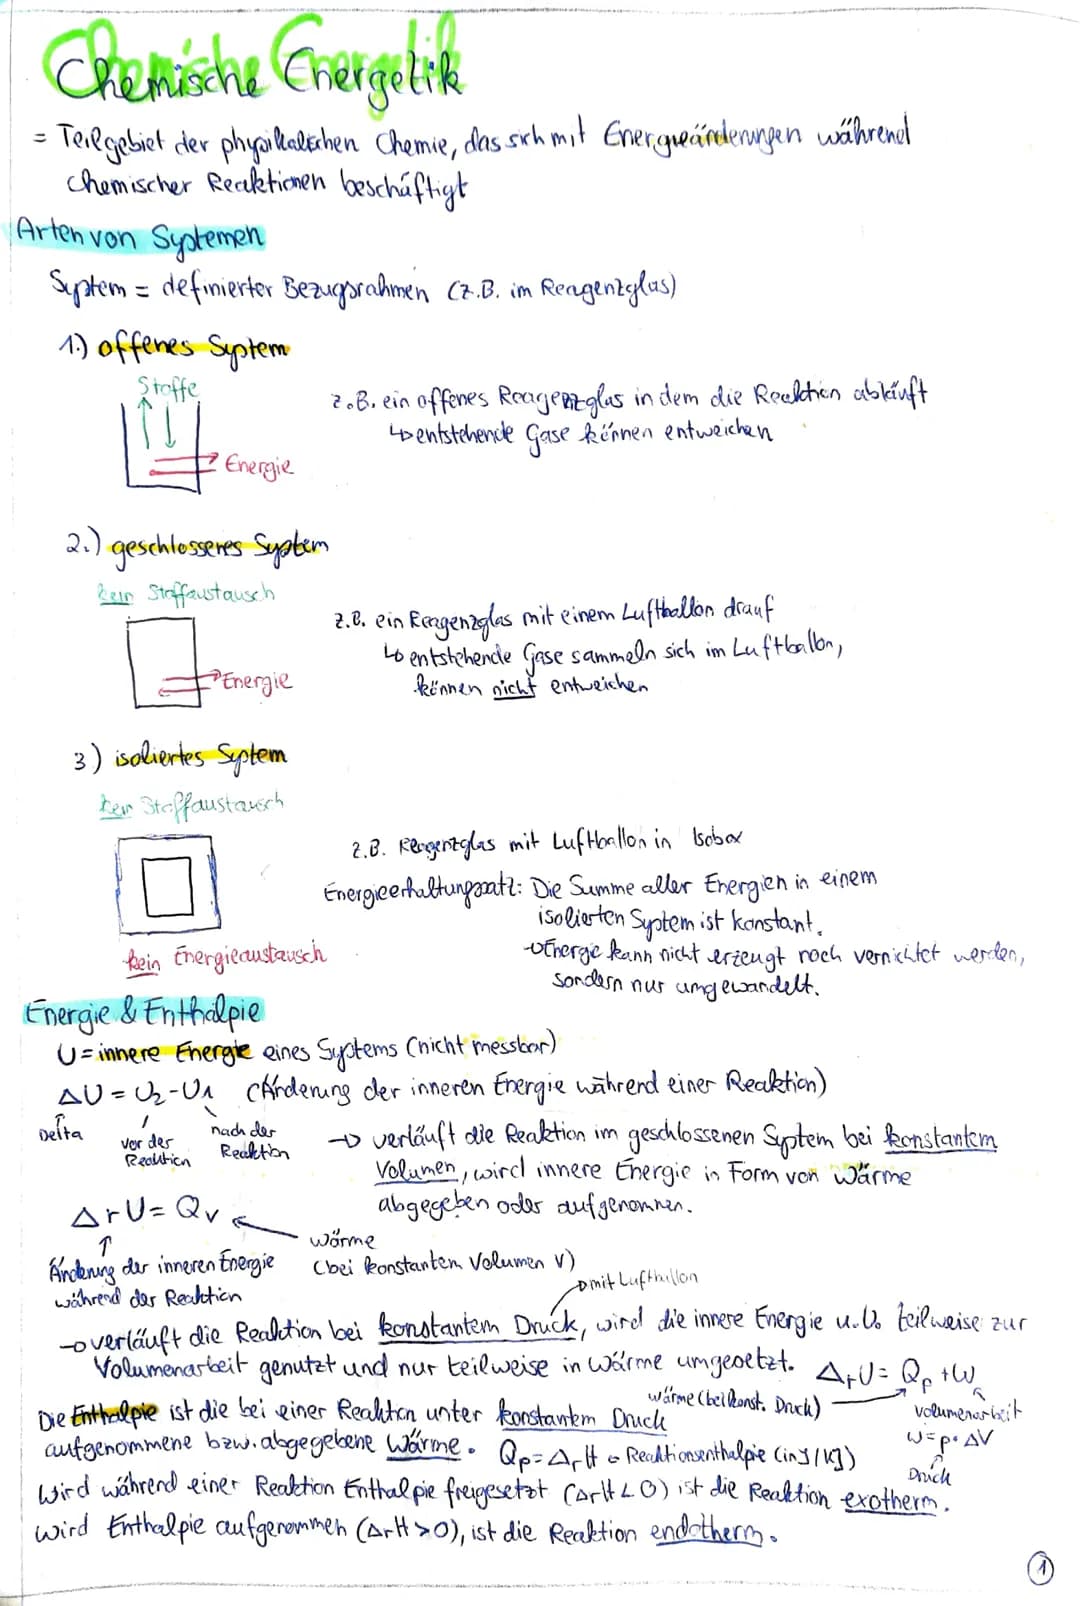 Chemische Energetik
= Teilgebiet der physikalischen Chemie, das sich mit Energieänderungen während
chemischer Reaktionen beschäftigt
Arten von Systemen
System = definierter Bezugsrahmen (z.B. im Reagenzglas)
1.) offenes System
Stoffe
Energie
z.B. ein offenes Reagenzglas in dem die Reaktion abläuft
↳ entstehende Gase können entweichen
2.) geschlossenes System
kein Stoffaustausch
Energie
z.B. ein Reagenzglas mit einem Luftballon drauf
↳ entstehende Gase sammeln sich im Luftballon,
können nicht entweichen
3) isoliertes System
kein Stoffaustausch
kein Energieaustausch
z.B. Reagenzglas mit Luftballon in Isobox
Energieerhaltungssatz: Die Summe aller Energien in einem
isolierten System ist konstant.
→ Energie kann nicht erzeugt noch vernichtet werden,
sondern nur umgewandelt.
Energie & Enthalpie
U = innere Energie eines Systems (nicht messbar)
ΔU = U₂ - U₁ (Änderung der inneren Energie während einer Reaktion)
Delta
vor der
Reaktion
nach der
Reaktion
→ verläuft die Reaktion im geschlossenen System bei konstantem
Volumen, wird innere Energie in Form von Wärme
abgegeben oder aufgenommen.
ΔrU = Qv
Änderung der inneren Energie
während der Reaktion
Wärme
(bei konstantem Volumen V)
→ mit Luftballon
→ verläuft die Reaktion bei konstantem Druck, wird die innere Energie u.U. teilweise zur
Volumenarbeit genutzt und nur teilweise in Wärme umgesetzt. ΔrU = Qp + W
Wärme (bei konst. Druck)
Volumenarbeit
W = p • ΔV
Druck
Die Enthalpie ist die bei einer Reaktion unter konstantem Druck
aufgenommene bzw. abgegebene Wärme. Qp = ΔrH → Reaktionsenthalpie (in J/kJ)
Wird während einer Reaktion Enthalpie freigesetzt (ΔrH < 0) ist die Reaktion exotherm.
Wird Enthalpie aufgenommen (ΔrH > 0), ist die Reaktion endotherm.
1